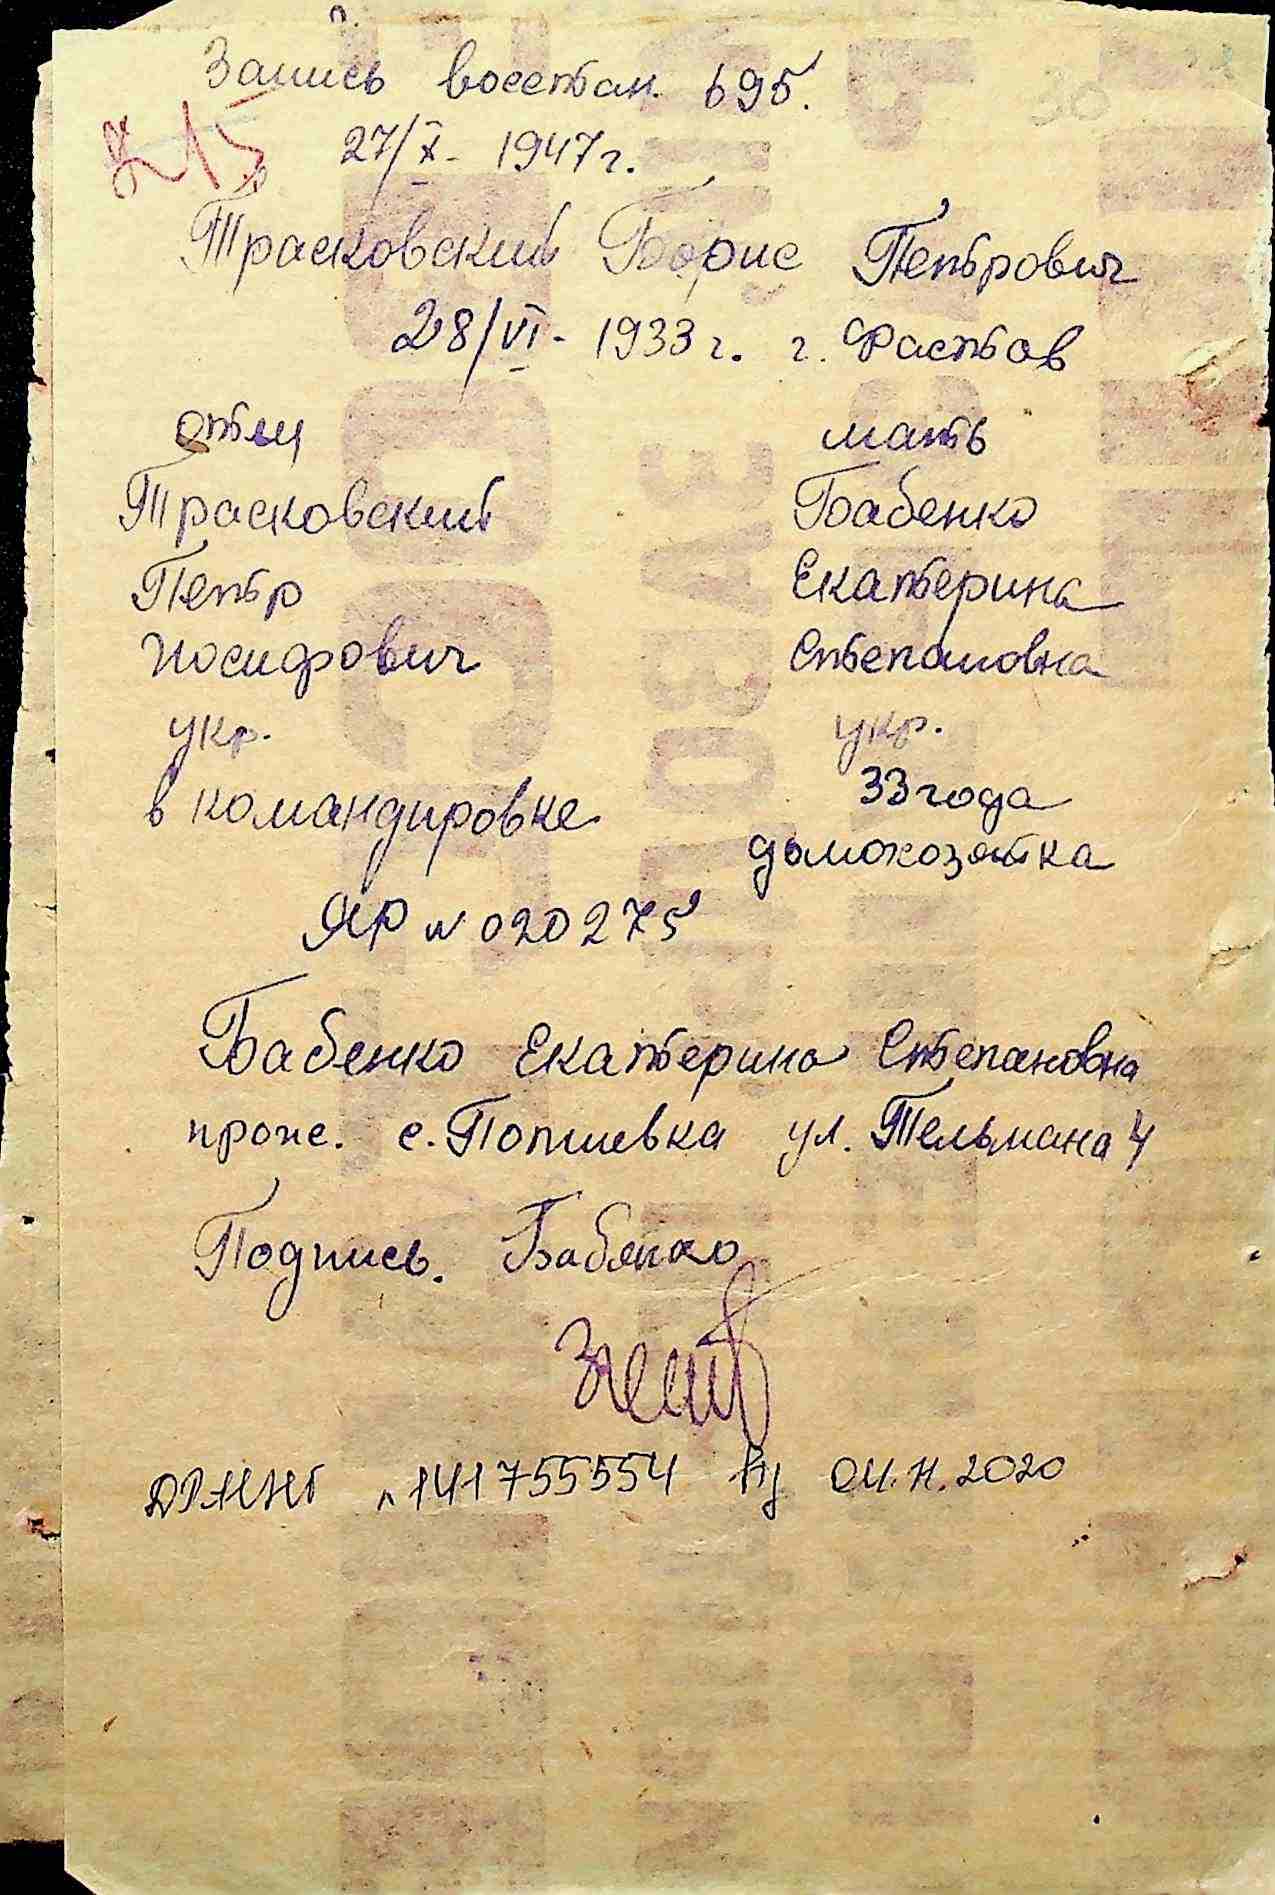 Запись восстан. 695.
27/X - 1947 г.
Трасковский Борис Петрович
28/VI - 1933 г. г. Фастов
отец мать
Трасковский Бабенко
Петр Екатерина
Иосифович Степановна
укр. укр.
в командировке 33 года
домохозяйка
ЯР № 020275
Бабенко Екатерина Степановна
прож. с. ул. Тельмана 4
Подпись. Бабенко
141755554 04.11.2020